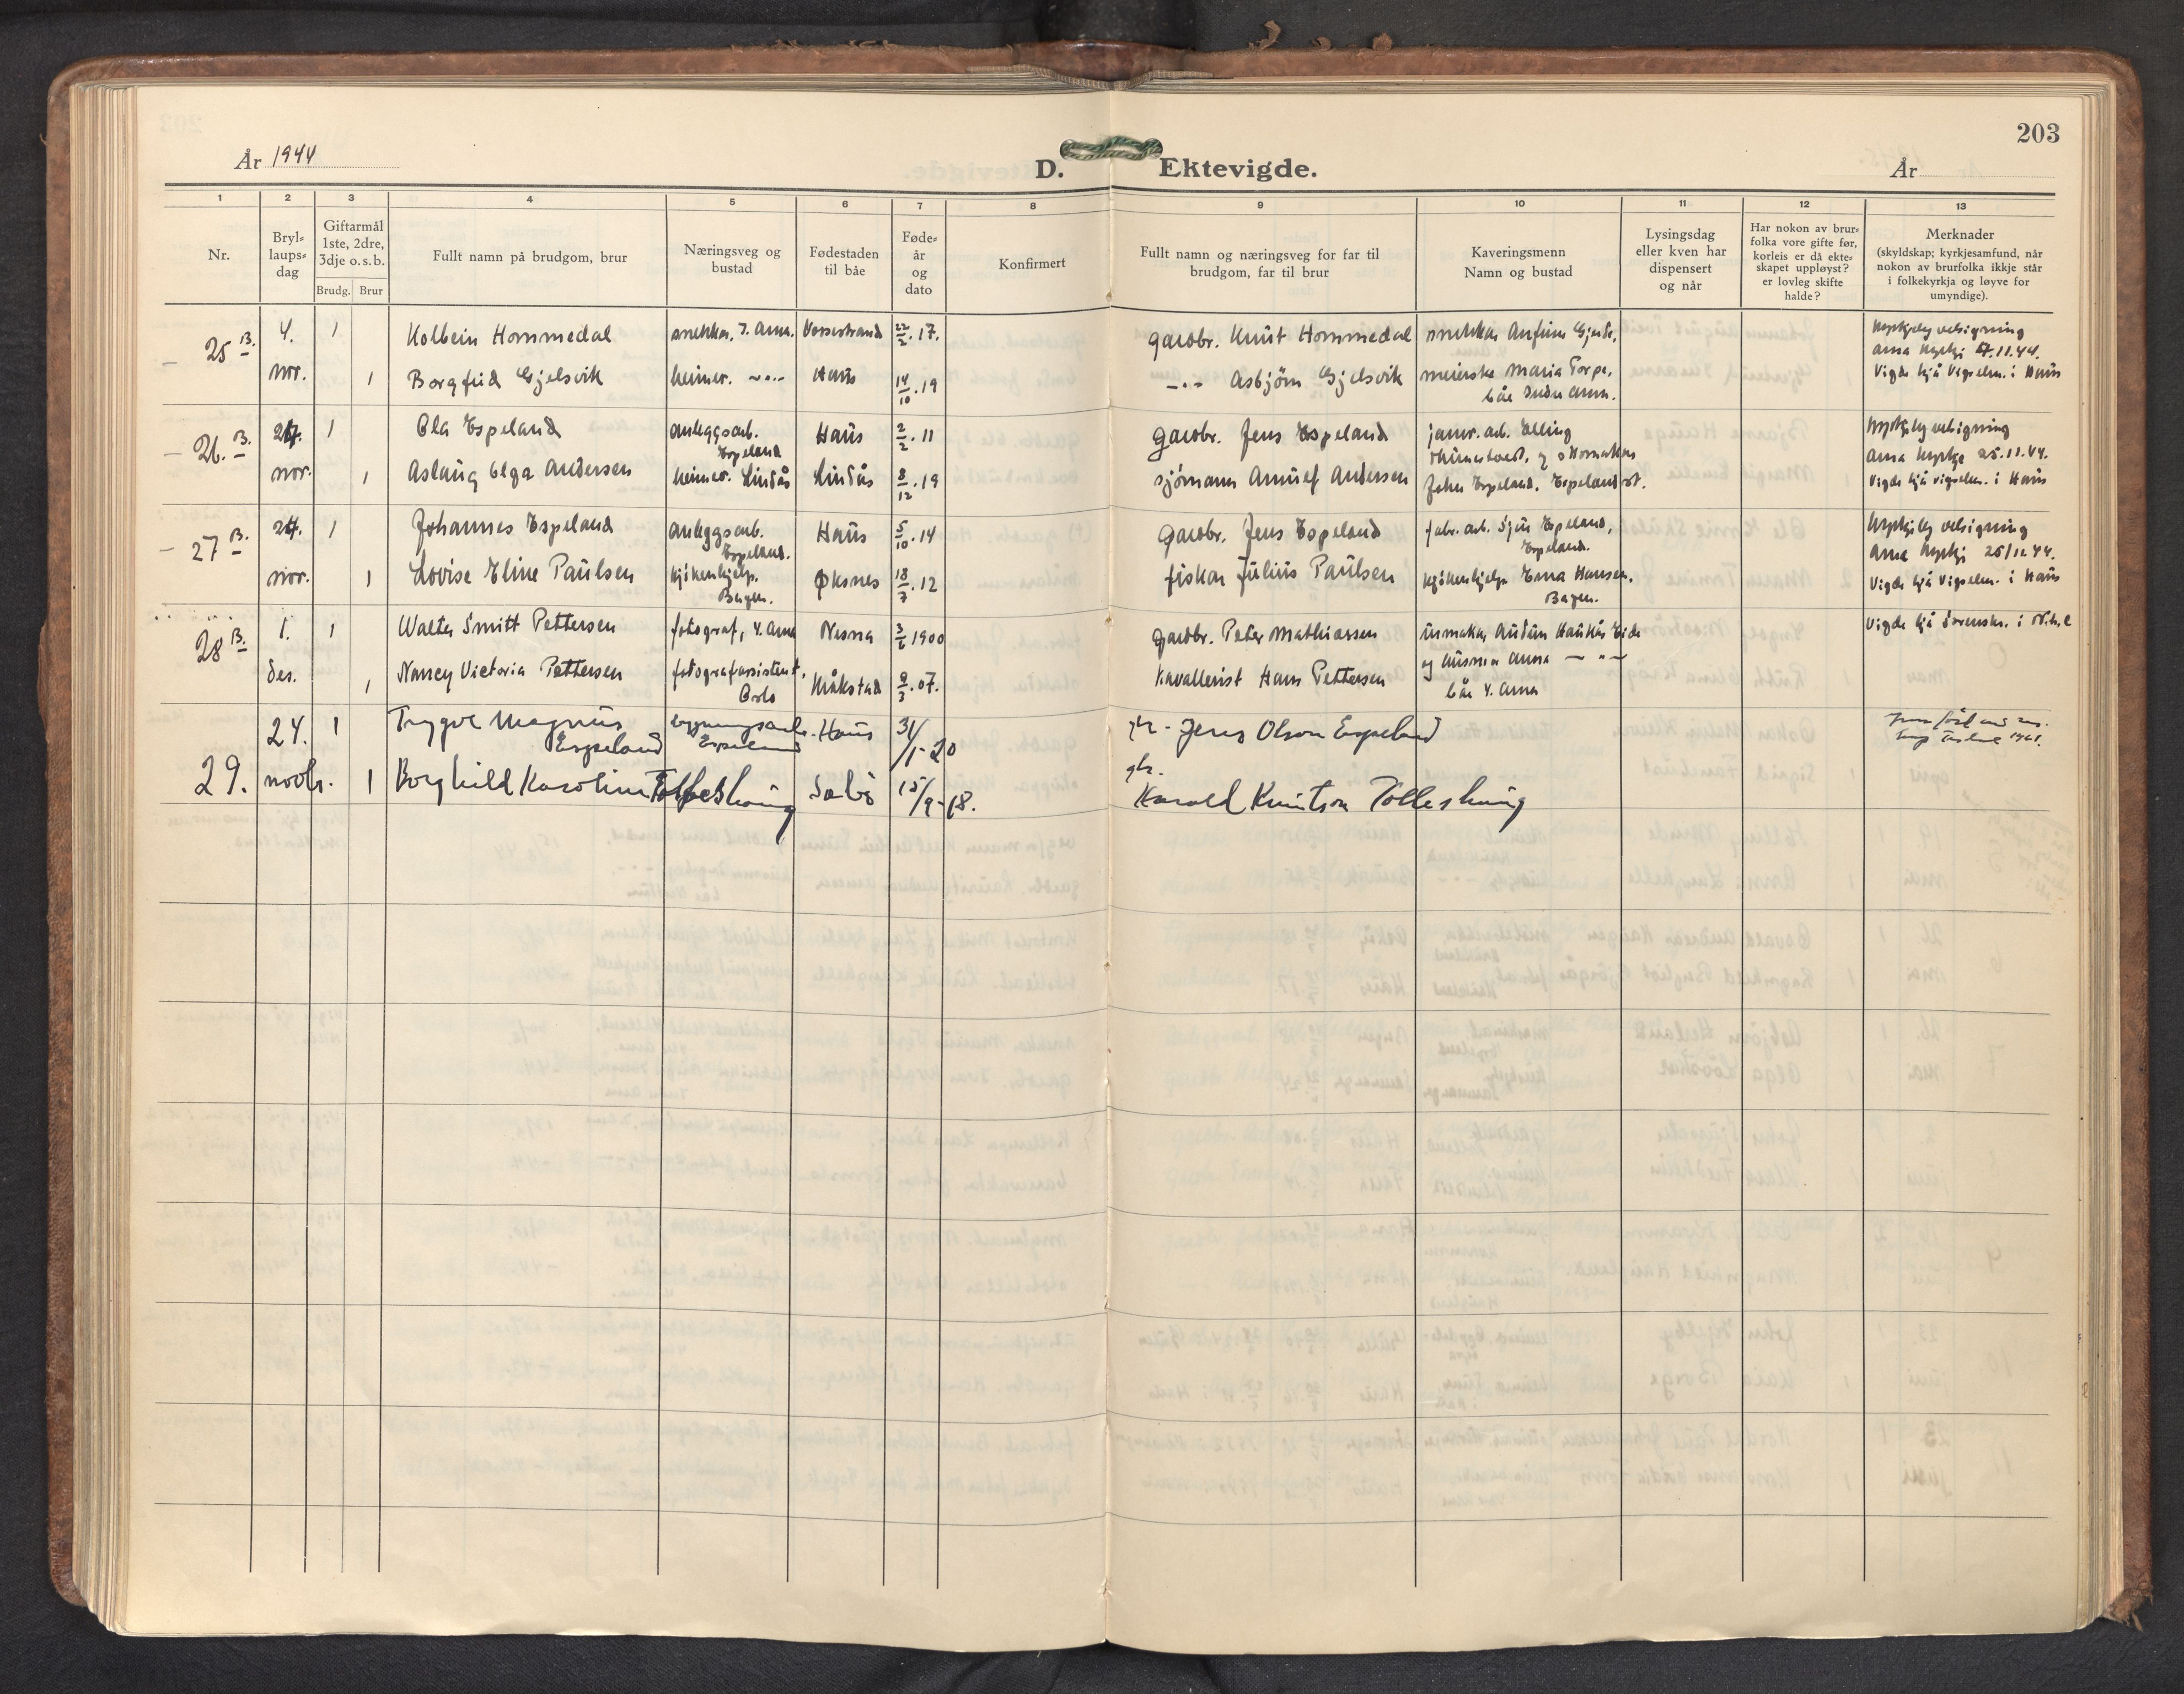 203
År 1944
D. Ektevigde.
År
1 2 3 4 5 6 7 8 9 10 11 12 13
Nr.
Bryl-
laups-
dag
Giftarmål
1ste, 2dre,
3dje o.s.b.
Brudg. Brur
Fullt namn på brudgom, brur
Næringsveg og
bustad
Fødestaden
til båe
Føde-
år
og
dato
Konfirmert
Fullt namn og næringsveg for far til
brudgom, far til brur
Kaveringsmenn
Namn og bustad
Lysingsdag
eller kven har
dispensert
og når
Har nokon av brur-
folka vore gifte før,
korleis er då ekte-
skapet uppløyst?
er lovleg skifte
halde?
Merknader
(skyldskap; kyrkjesamfund, når
nokon av brurfolka ikkje står
i folkekyrkja og løyve for
umyndige).
25 B. 4. 1 Kolbein Hommedal snekkar, Y. Arna. Vossestrand 22/2.17. gardbr. Knut Hommedal snekkar Anfinn Gjerde, kyrkjeleg velsigning
Arna kyrkje 4.11.44.
nov. 1 Borgfrid Gjelsvik heimev. -"- Haus 14/10.19 -"- Asbjørn Gjelsvik meierske Maria Torpe, Vigde hjå Vigselm. i Haus
båe Indre Arna.
26. B. 24. 1 Ola Espeland anleggsarb. Haus 2/2.11 gardbr. Jens Espeland jarnv. arb. Elling kyrkjeleg velsigning
Espeland og skomakar Arna kyrkje 25.11.44.
nov. 1 Aslaug Olga Andersen heimev. Lindås Lindås 8/12.19 sjømann Arnulf Andersen John Espeland, Espeland st. Vigde hjå vigselm. i Haus
27 B. 24. 1 Johannes Espeland anleggsarb. Haus 5/10.14 gardbr. Jens Espeland fabr. arb. Sjur Espeland, kyrkjeleg velsigning
Espeland. Espeland. Arna kyrkje 25/11.44.
nov. 1 Lovise Eline Paulsen kjøkenhjelp. Øksnes 18/7.12 fiskar Julius Paulsen kjøkenhjelp Erna Hansen, Vigde hjå Vigselm. i Haus
Bergen. Bergen.
28 B. 1. 1 Walter Smitt Pettersen fotograf, Y. Arna Nesna 3/2 1900 gardbr. Peter Mathiassen urmakar Audun Haukås Eide Vigde hjå Sorenskr. i
des. 1 Nancy Victoria Pettersen fotografassistent, Kråkstad 9/3.07. kavallerist Hans Pettersen og husmor Anna -"-
Oslo båe Y. Arna
24. 1 Trygve Magnus Haus 31/1-20 gbr. Jens Olson Espeland
Espeland Espeland
29. novbr. 1 Borghild Karoline Tolleshaug Sæbø 15/9-18. gbr.
Harald Knutson Tolleshaug